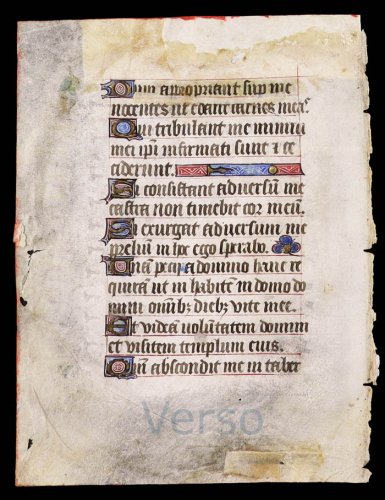 Dum apropriant sup me
nocentes ut edant carnes meas
Qui tribulant me inimici
mei ipi infirmati sunt et ce
ciderunt.
Si consistant adversū me
castra non timebit cor meū.
Si exurgat adversum me
preliū in hoc ego sperabo.
Unā pecii a domino hanc re
quirā ut in habitē in domo do
mini omībꝫ diebꝫ vite mee.
Ut videā volūtatem domini
et visitem templum eius.
Qm̄ abscondit me in taber
Verso